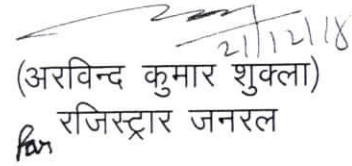 21/12/18
(अरविन्द कुमार शुक्ला)
for रजिस्ट्रार जनरल